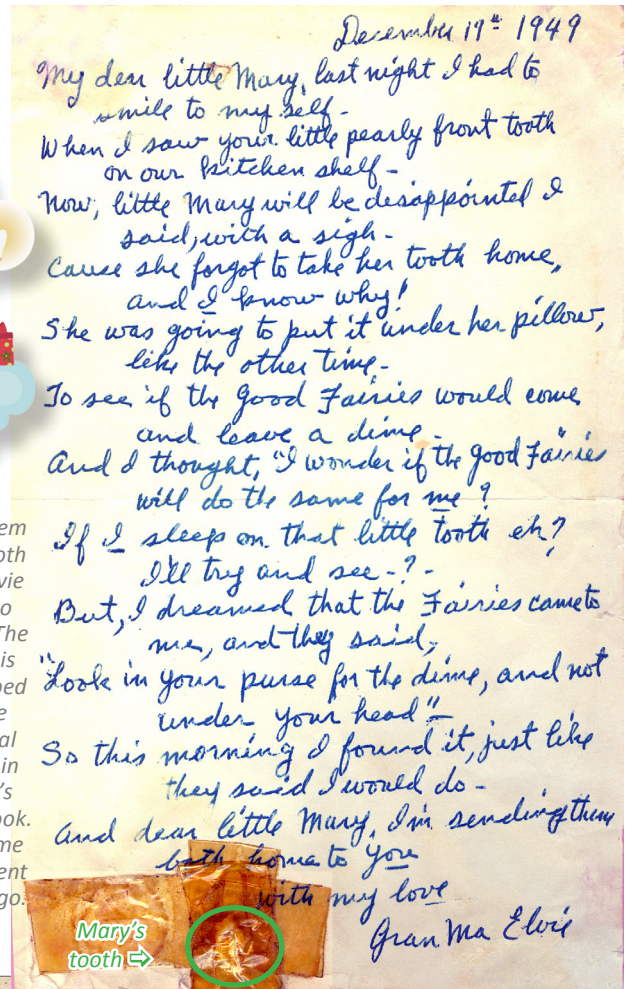 December 19th 1949
My dear little Mary, last night I had to
smile to my self -
When I saw your little pearly front tooth
on our kitchen shelf -
Now, little Mary will be disappointed I
said, with a sigh -
Cause she forgot to take her tooth home,
and I know why!
She was going to put it under her pillow,
like the other time -
To see if the Good Fairies would come
and leave a dime -
And I thought, "I wonder if the good Fairies
will do the same for me?
If I sleep on that little tooth eh?
I'll try and see - ? -
But, I dreamed that the Fairies came to
me, and they said,
"Look in your purse for the dime, and not
under your head" -
So this morning I found it, just like
they said I would do -
And dear little Mary, I'm sending them
both home to you
with my love
Gran Ma Elvie
Mary's
tooth ⇨
em
oth
vie
o
The
is
ped
e
al
in
's
ook.
me
ent
go.